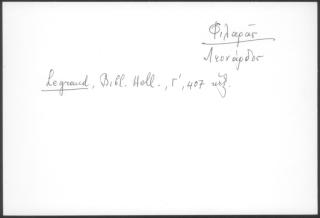 Φιλαρᾶς
Λεονάρδος
Legrand, Bibl. Hell., Γ', 407 κἑξ.